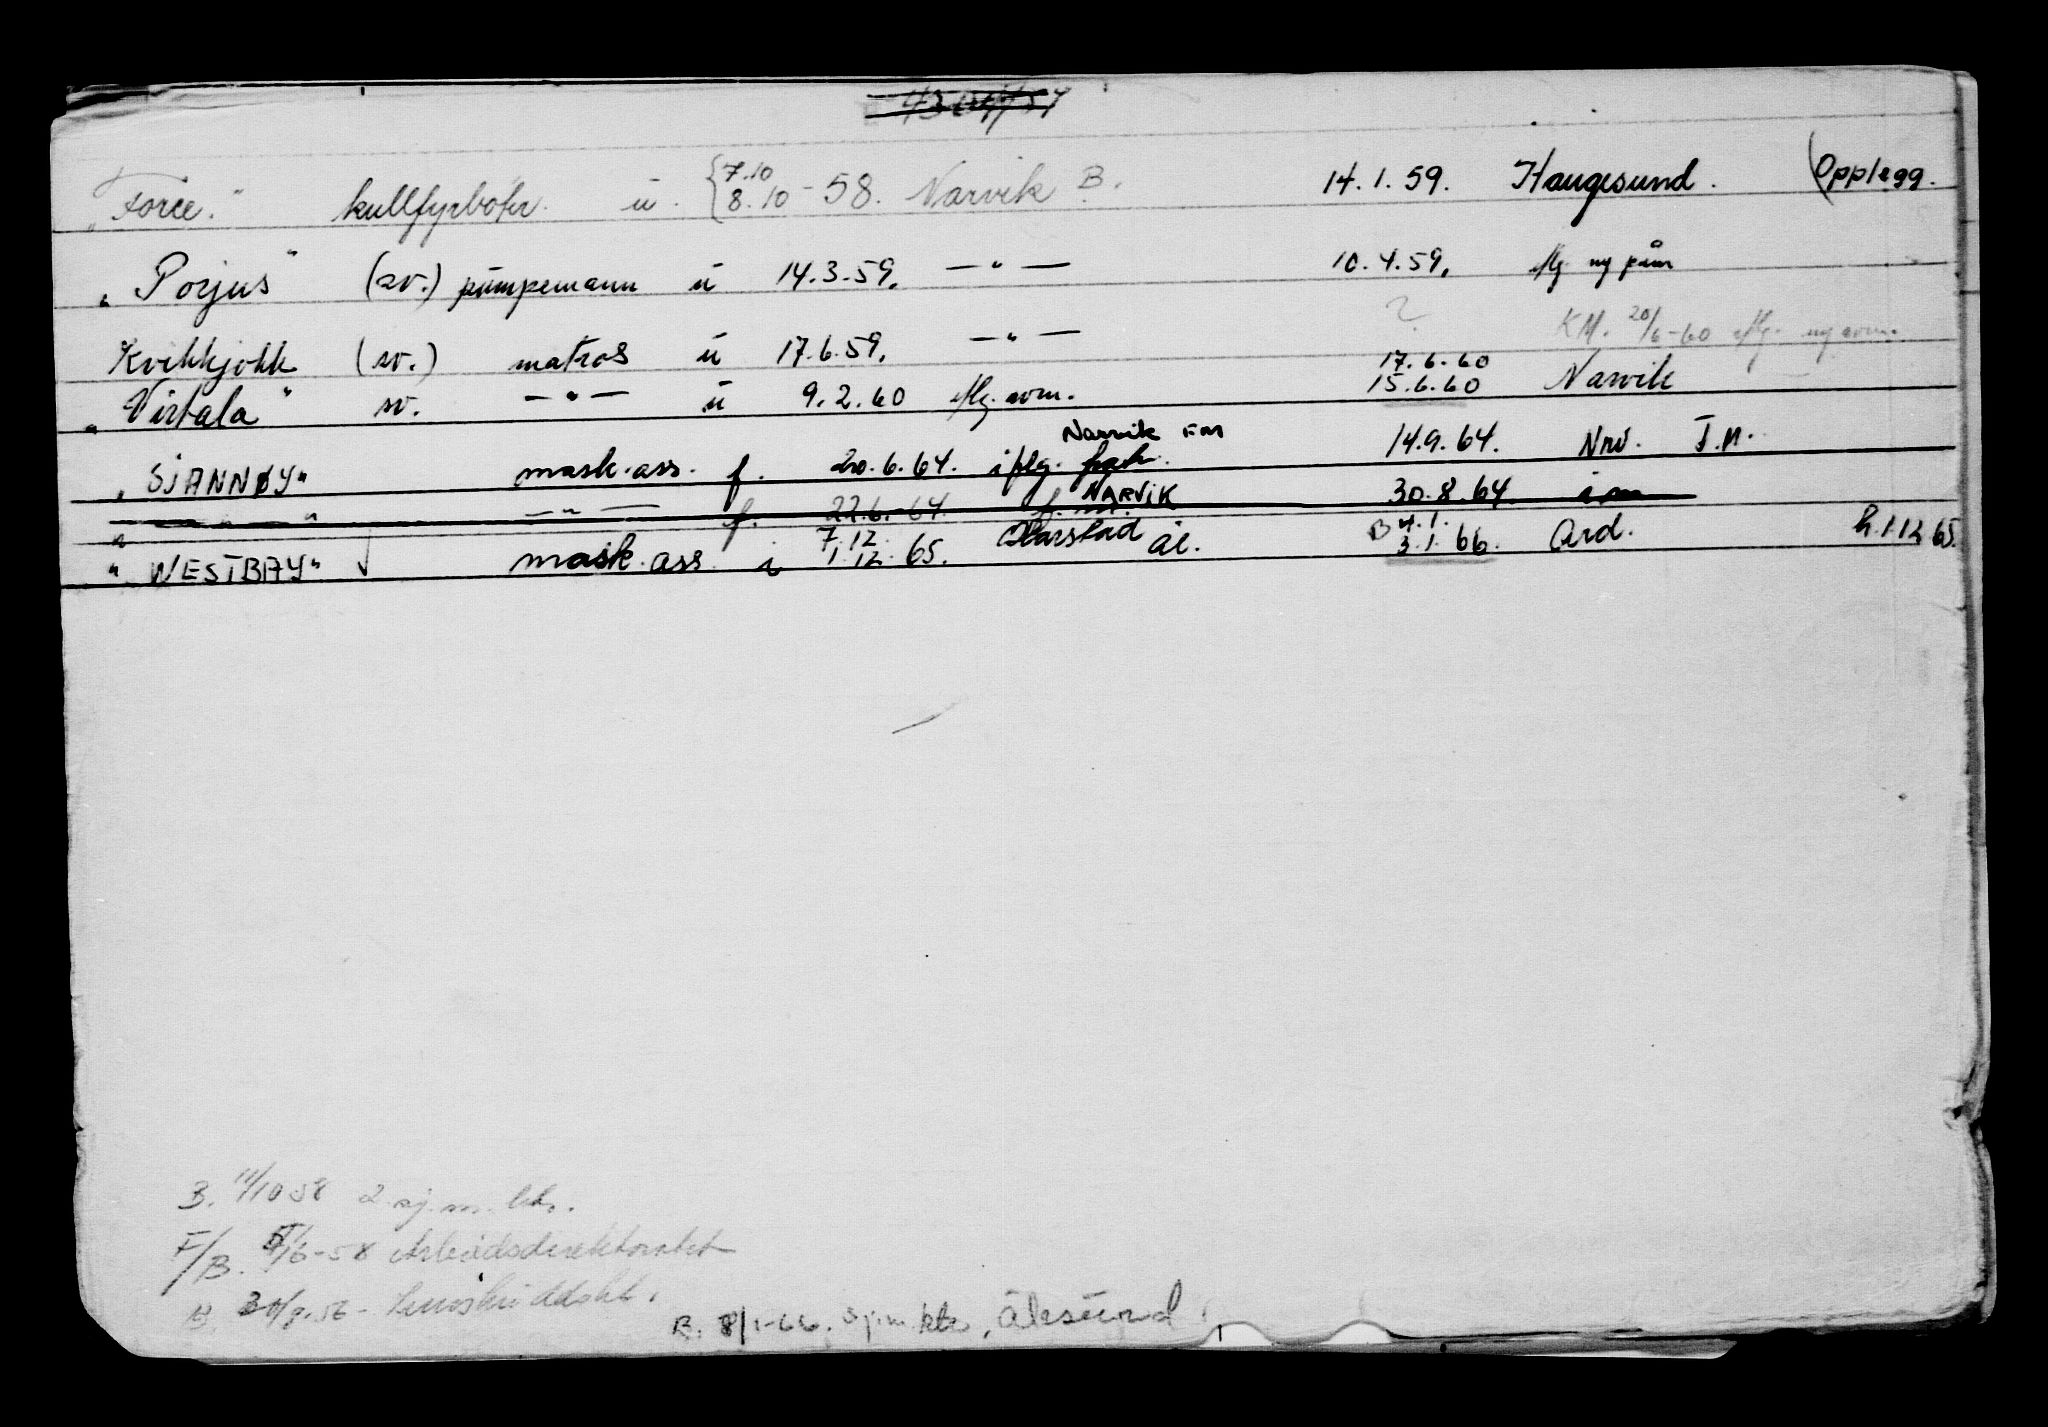 "Force." kullfyrbøter. u. {7.10 8.10-58. Narvik B. 14.1.59. Haugesund. (Opplegg.
"Porjus" (sv.) pumpemann u 14.3.59. —"— 10.4.59.
?
Kvikkjokk (sv.) matros u 17.6.59. —"— 17.6.60 KM. 20/6-60
"Virtala" sv. —"— u 9.2.60 15.6.60 Narvik
Narvik FM
"SJANNØY" mask.ass. f. 20.6.64. iflg. 14.9.64. Nrv. T.M.
NARVIK
— " " —"— f. 22.6.64. f.m. 30.8.64 i m
7.12 Harstad B 4.1.
"WESTBAY" mask.ass. i 1.12.65. ål. 3.1.66. Ard. h.1.12 65.
B. 14/10 58 2. sj.m. ktr.
F/B. /6-58 Arbeidsdirektoratet
B. 8/1-66. Sjm.ktr, Ålesund